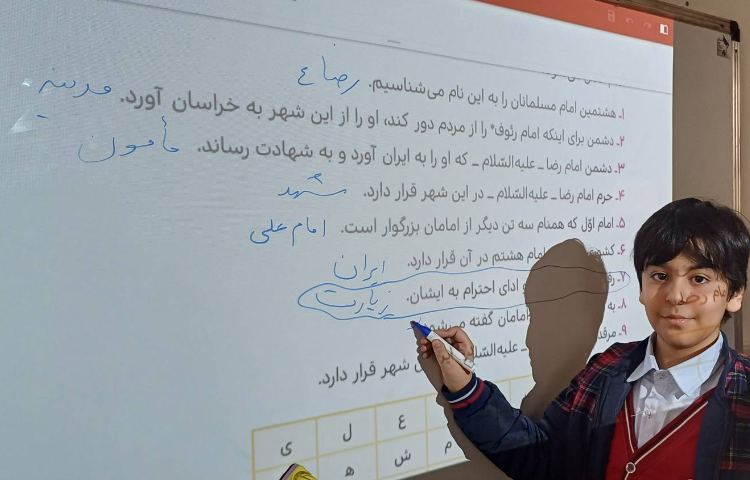 ۱ـ هشتمین امام مسلمانان را به این نام می‌شناسیم. رضا ع
۲ـ دشمن برای اینکه امام رئوف* را از مردم دور کند، او را از این شهر به خراسان آورد. مدینه
۳ـ دشمن امام رضا ـ علیه‌السّلام ـ که او را به ایران آورد و به شهادت رساند. مأمون
۴ـ حرم امام رضا ـ علیه‌السّلام ـ در این شهر قرار دارد. مشهد
۵ـ امام اوّل که همنام سه تن دیگر از امامان بزرگوار است. امام علی
۶ـ امام هشتم در آن قرار دارد. ایران
۷ـ و ادای احترام به ایشان. زیارت
۸ـ به امامان گفته می‌شود.
۹ـ مرقد ـ علیه‌السّلام شهر قرار دارد.
ع ل ی
م ش ه